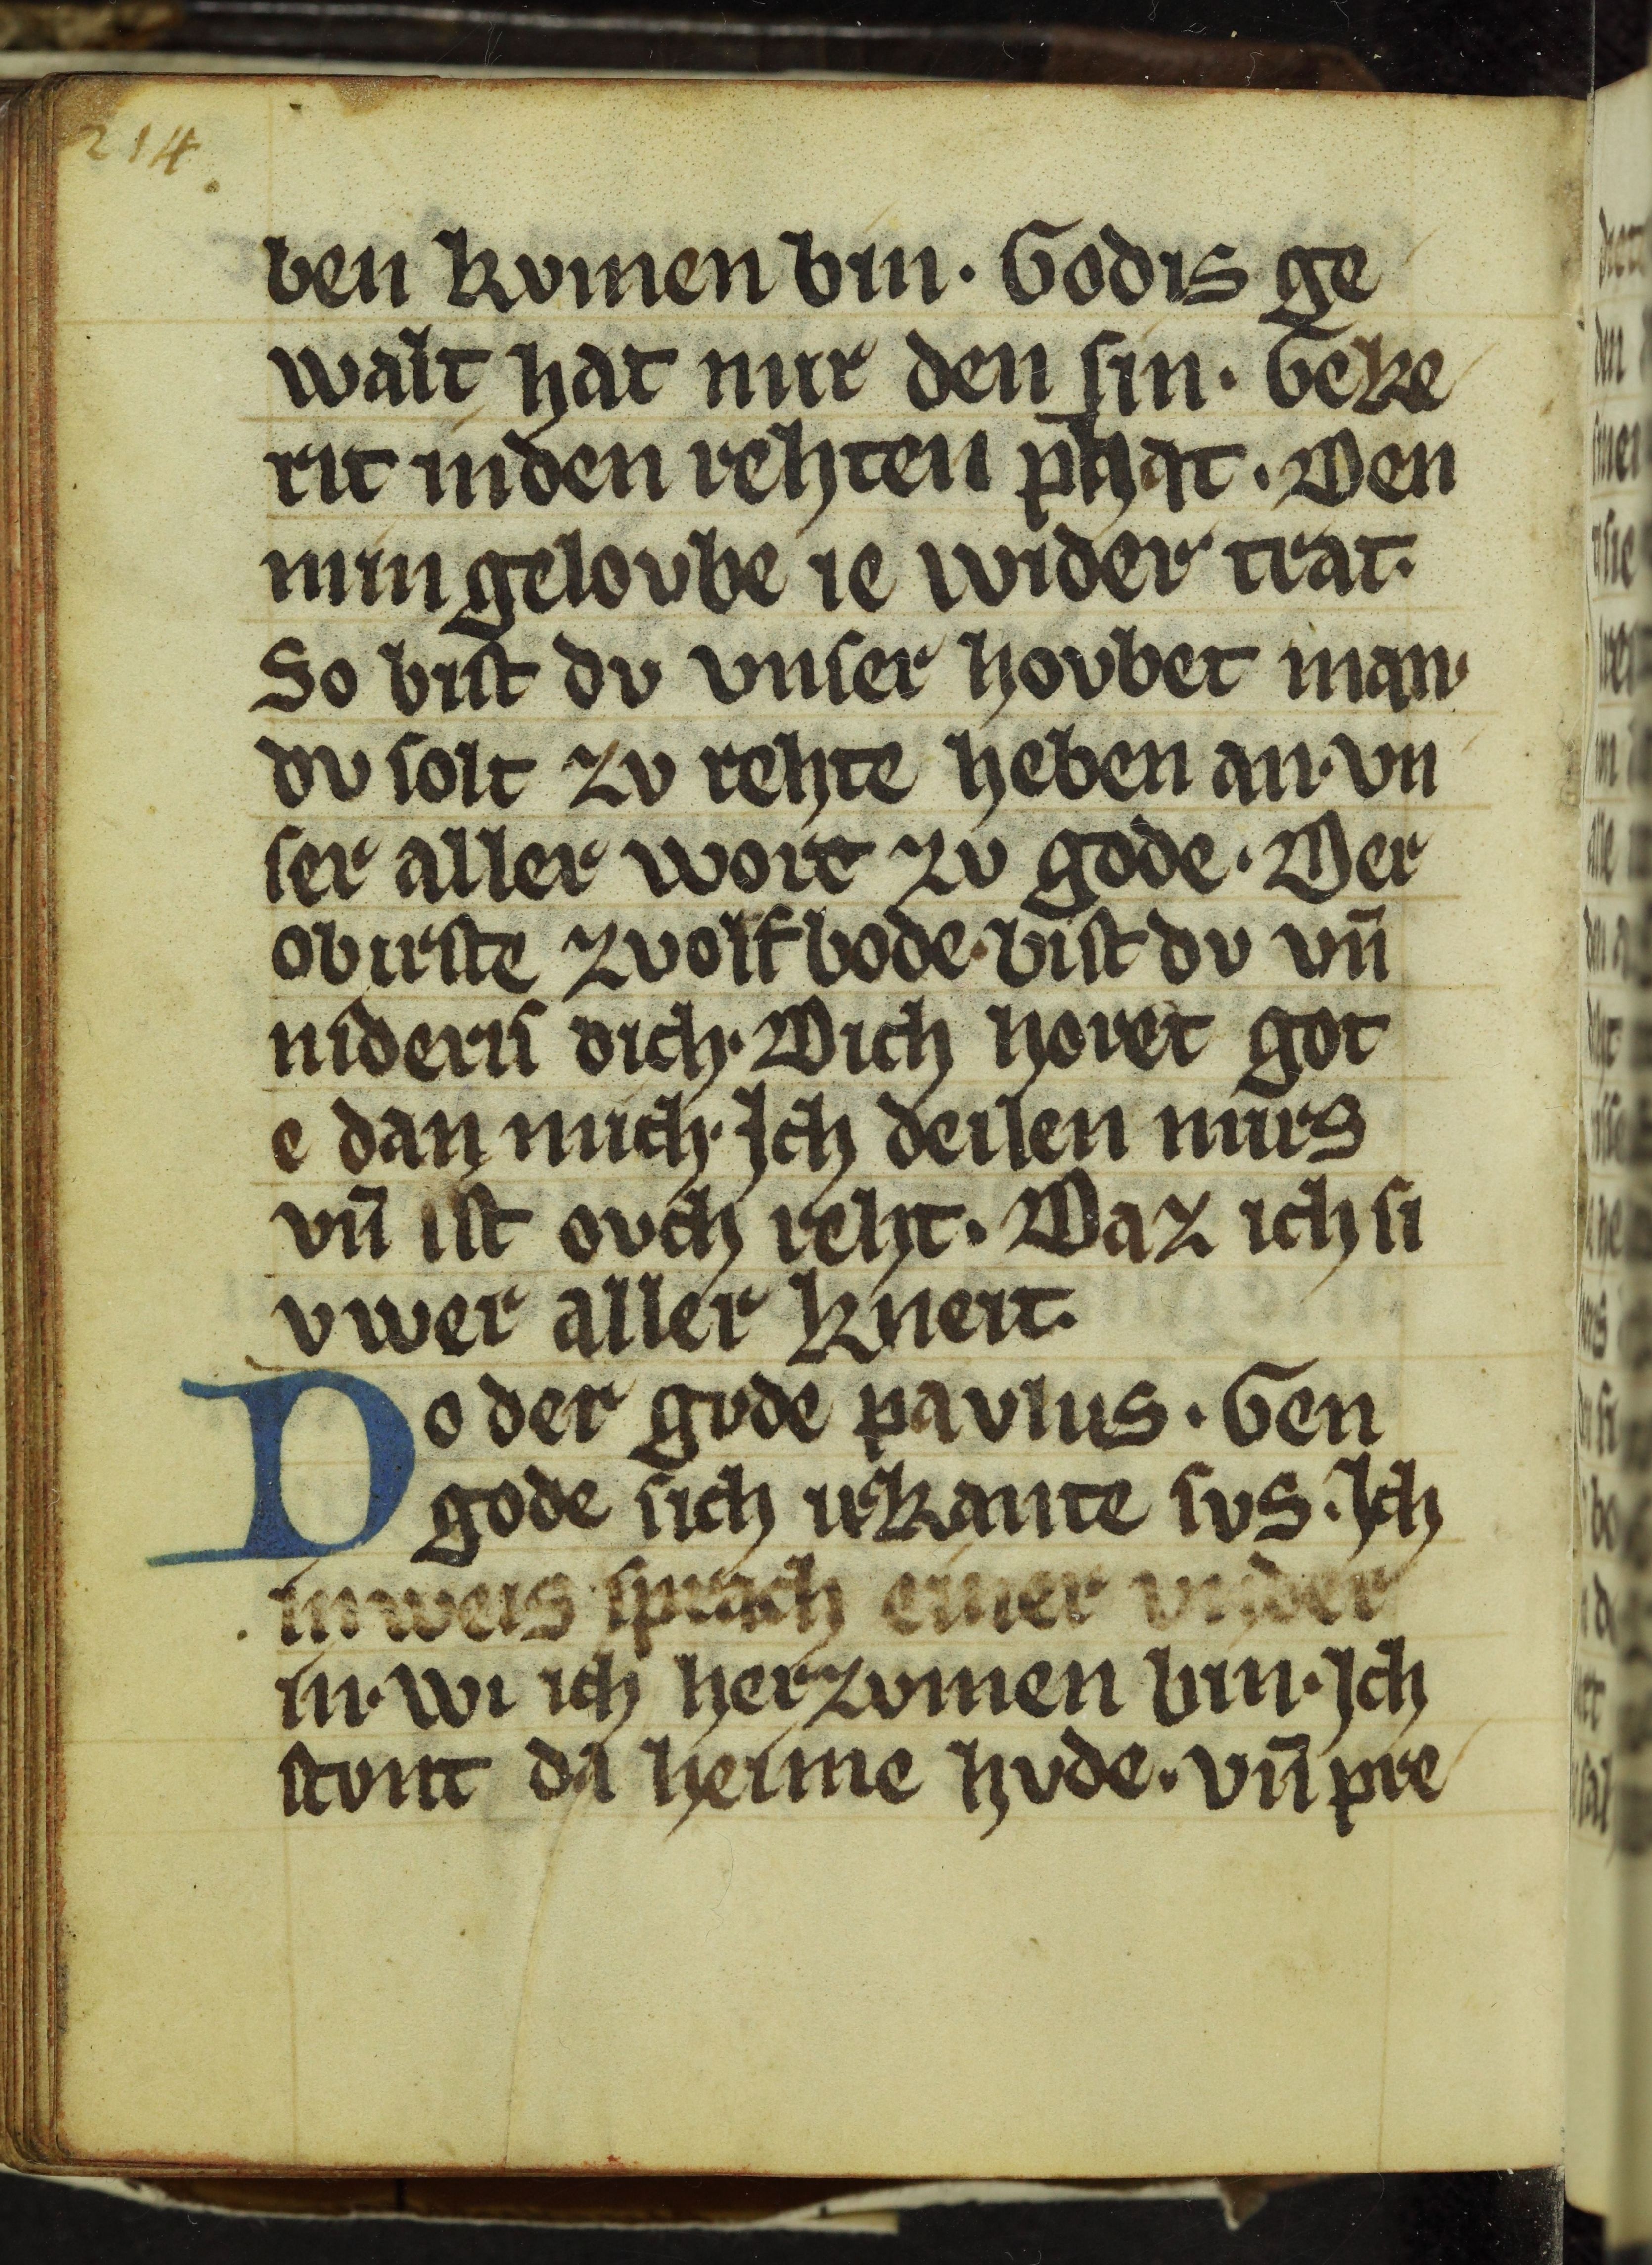 214.
ben kvmen bin. Godis ge
walt hat mir den sin. Geke
rit inden rehten phat. Den
min gelovbe ie wider trat.
So bist dv vnser hovbet man.
dv solt zv rehte heben an. vn
ser aller wort zv gode. Der
oburste zvolf bode. bist dv vn̄
niders dich. Dich horet got
e dan mich. Ich deilen mirs
vn̄ ist ovch reht. Daz ich si
vwer aller kneit.
Do der gvde pavlus. Gen
gode sich irkante svs. Ich
inweis sprach einer vnder
in. wi ich herzvmen bin. Ich
stvnt da heime hvde. vn̄ pre